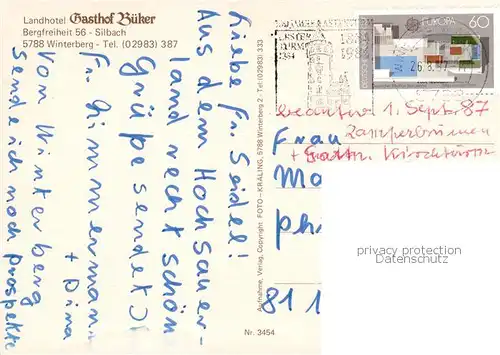 Landhotel Gasthof Büker
Bergfreiheit 56 - Silbach
5788 Winterberg - Tel. (02983) 387
Liebe Fr. Seidel!
Aus dem Hochsauer-
land recht schön
Grüße sendet
Fr. Zimmermann
+ Dina
Vom Winterberg
sende ich noch Prospekte
Aufnahme, Verlag, Copyright: FOTO - KRALING, 5788 Winterberg 2 - Tel. (02983) 333
Nr. 3454
EUROPA 60
26.8.87
beantw. 1. Sept. 87
+ Kirchturm
Frau
Mo
ph
811
privacy protection
Datenschutz